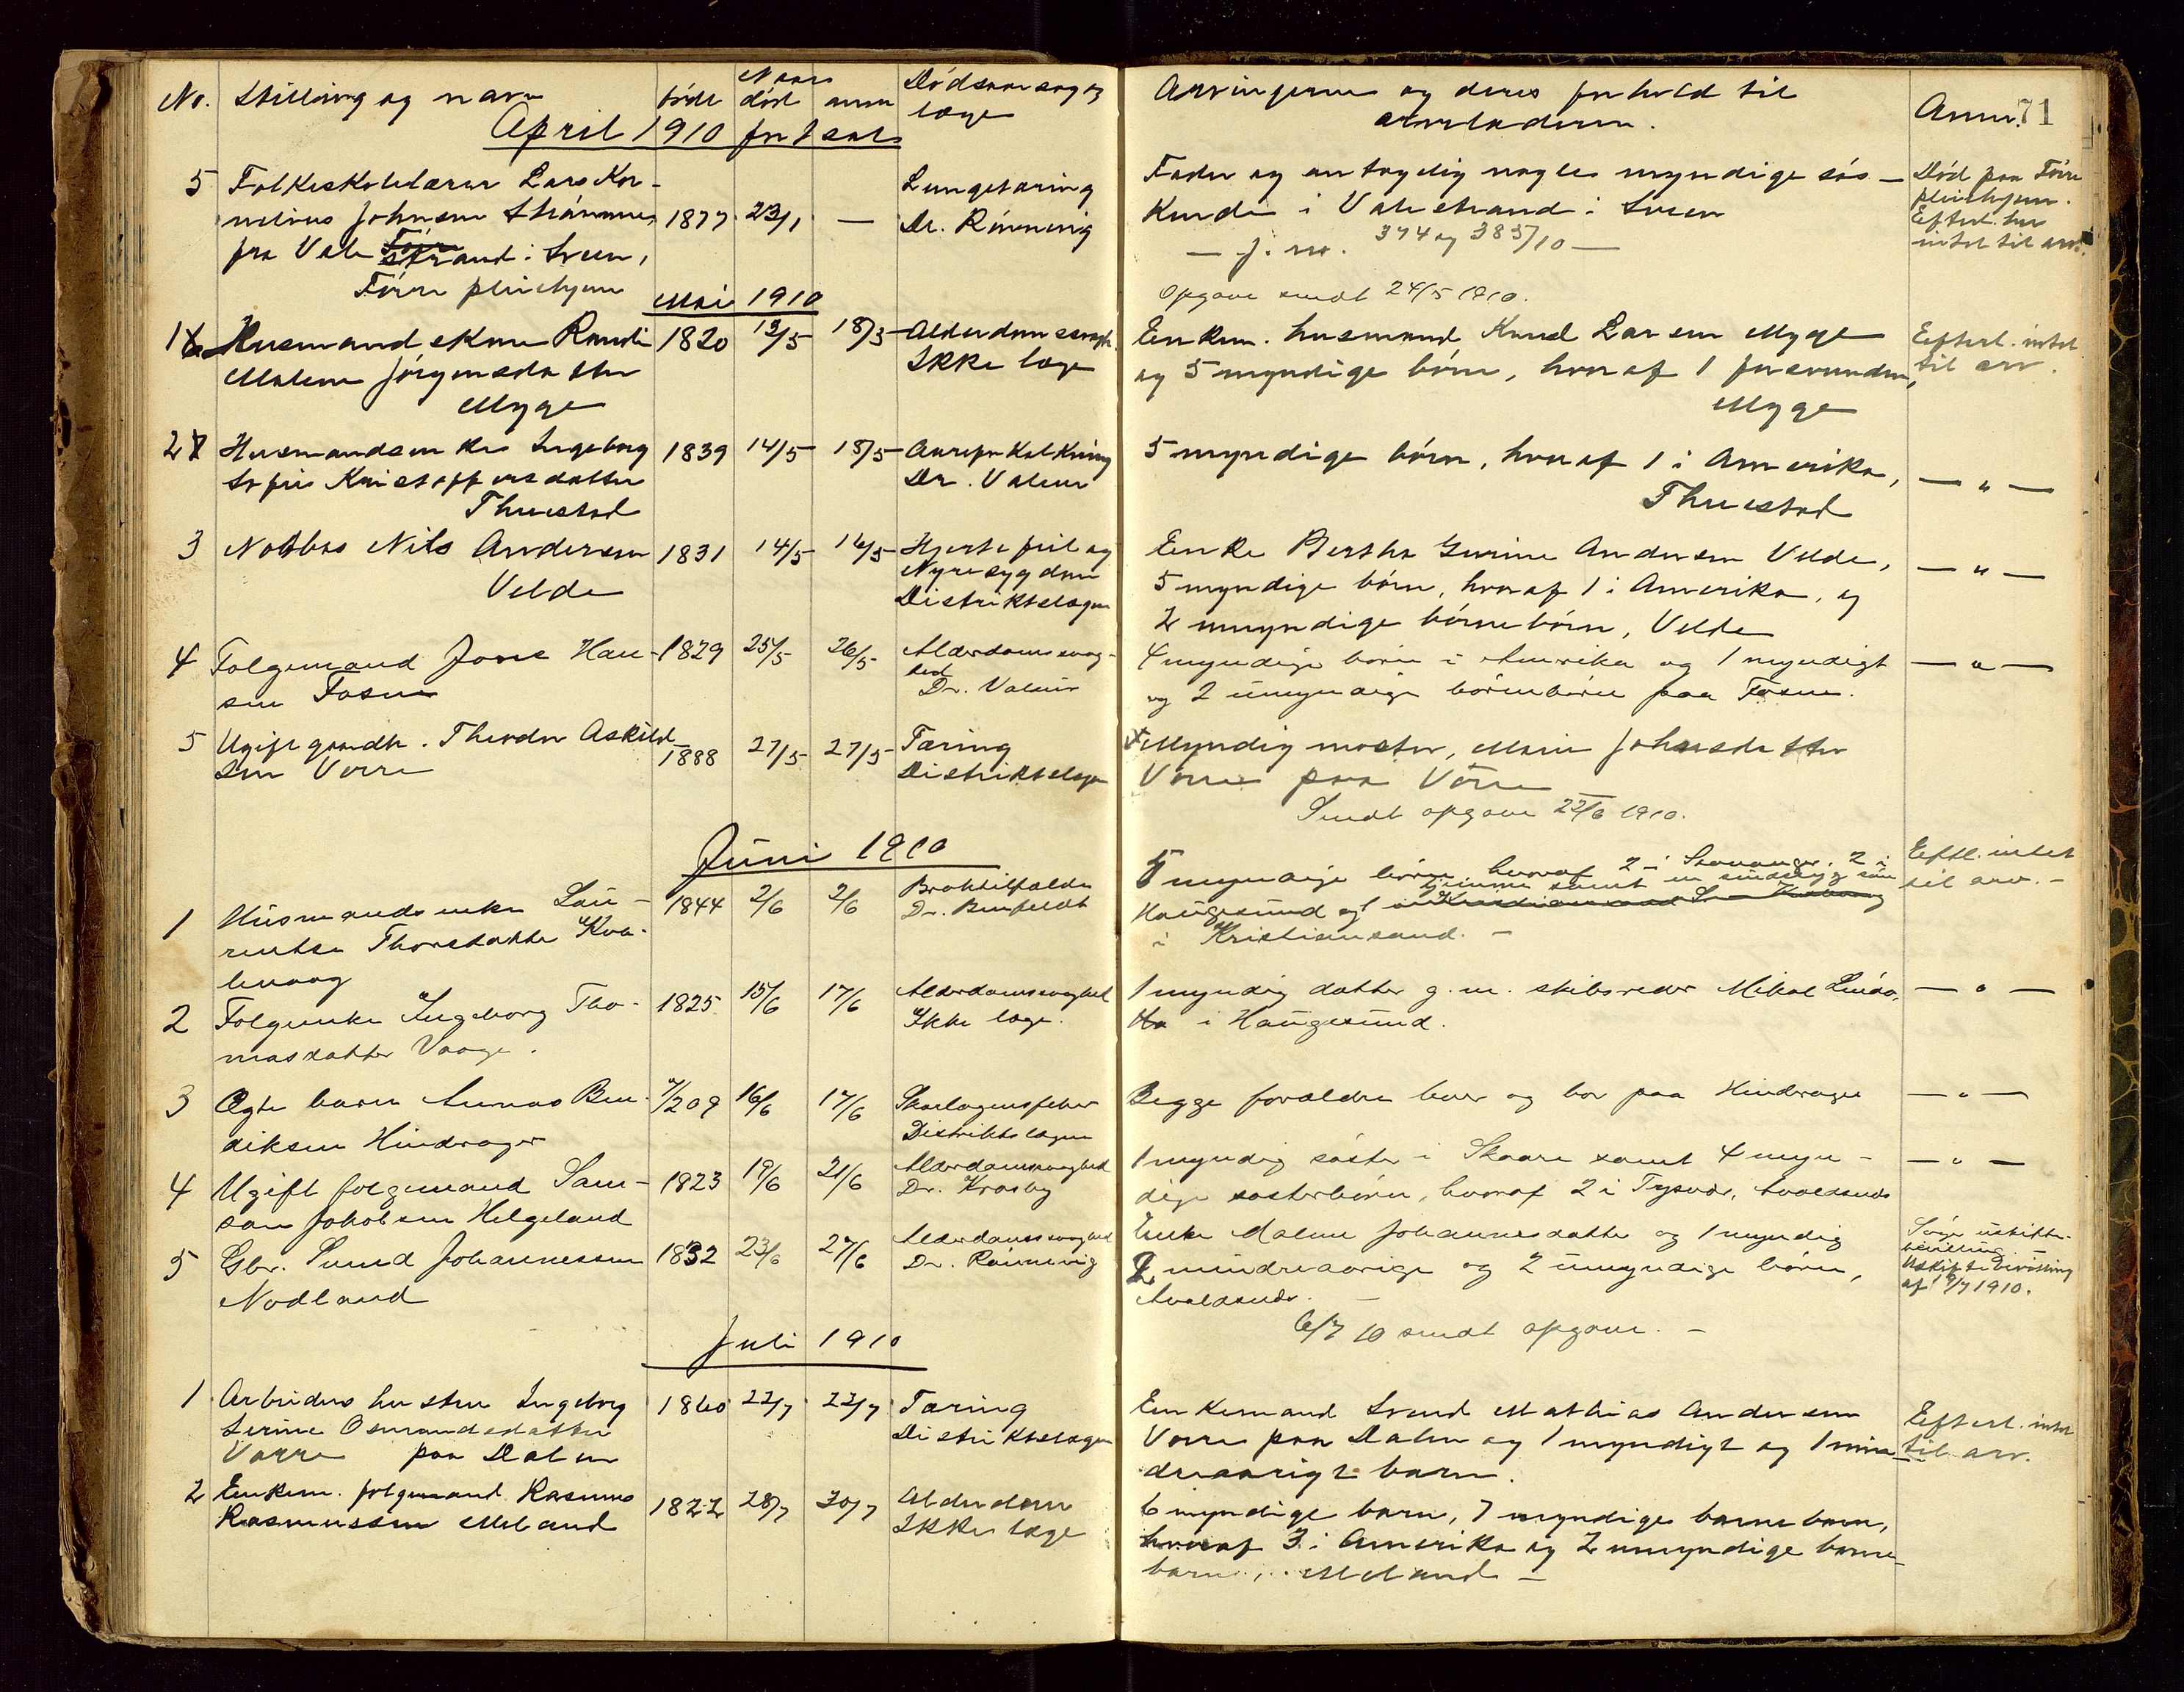 No. Stilling og navn født Naar død anm Dødsaarsag og læge
Arvingerne og deres forhold til arveladeren.
Anm. 71
April 1910 fortsat
5 Folkeskolelærer Lars Kor-
nelius Johnsen 1877 23/1 — Lungetæring
fra Vale strand i Sveen, Dr. Rönnevig
Förre pleiehjem
Fader og antagelig nogle myndige søs-
kende i Valestrand i Sveen
— J. nr. 374 og 385/10 —
Opgave sendt 24/5 1910.
Död paa Förre
pleiehjem.
Efterl. her
intet til arv.
Mai 1910
1 Husmandskone Randi 1820 13/5 18/5 Alderdomssvagh.
Malene Jörgensdatter Ikke læge
Myge
Enkem. husmand Knud Larsen Myge
og 5 myndige börn, hvoraf 1 forsvunden,
Myge
Efterl. intet
til arv.
2 Husmandsenke Ingeborg 1839 14/5 18/5 Aareforkalkning
Sofie Kristoffersdatter Dr. Valeur
Thuestad
5 myndige börn, hvoraf 1 i Amerika, — " —
Thuestad
3 Notbas Nils Andersen 1831 14/5 16/5 Hjertefeil og
Velde Nyresygdom
Distriktslægen
Enke Bertha Gurine Andersen Velde, — " —
5 myndige börn, hvoraf 1 i Amerika, og
2 umyndige börnebörn, Velde
4 Folgemand Jone Han- 1829 25/5 26/5 Alderdomssvag-
sen Fosen hed
Dr. Valeur
4 myndige börn i Amerika og 1 myndigt — " —
og 2 umyndige börnebörn paa Fosen.
5 Ugift gaardbr. Theodor Askild- 1888 27/5 27/5 Tæring
sen Vorre Distriktslægen
Myndig moster, Marie Johnsdatter
Vorre paa Vorre
Sendt opgave 22/6 1910.
Juni 1910
1 Husmandsenke Lau- 1844 2/6 2/6 Broktilfælde
rentse Thorsdatter Kva- Dr. Benfeldt
levaag
5 myndige börn hvoraf 2 i Stavanger, 2 i
hjemme samt en sindssyg sön
Haugesund og 1
i Kristiansand. —
Eftl. intet
til arv. —
2 Folgeenke Ingeborg Tho- 1825 15/6 17/6 Alderdomssvaghed
masdatter Vaage. Ikke læge.
1 myndig datter g.m. skibsreder Mikal Lindö, — " —
i Haugesund.
3 Ægte barn Ben- 7/2 09 16/6 17/6 Skarlagensfeber
diksen Hindrager Distriktslægen
Begge forældre lever og bor paa Hindrager — " —
4 Ugift folgemand Sam- 1823 19/6 21/6 Alderdomssvaghed
son Jakobsen Helgeland Dr. Krosby
1 myndig söster i Skaare samt 4 myn- — " —
dige søsterbörn, hvoraf 2 i Tysvær, Avaldsnes
5 Gbr. Svend Johannessen 1832 23/6 27/6 Alderdomssvaghed
Nodland Dr. Rönnevig
Enke Malene Johannesdatter og 1 myndig
2 mindreaarige og 2 umyndige börn,
Avaldsnes. —
Söge uskifte-
bevilling —
Uskiftebevilling
af 19/7 1910.
6/7 10 sendt opgave. —
Juli 1910
1 Arbeiders hustru Ingeborg 1860 22/7 22/7 Tæring
Serine Osmundsdatter Distriktslægen
Vorre paa Dalen
Enkemand Svend Mathias Andersen
Vorre paa Dalen og 1 myndigt og 1 min-
dreaarigt barn.
Efterl. intet
til arv.
2 Enkem. folgemand Rasmus 1822 28/7 30/7 Alderdom
Rasmussen Meland Ikke læge
6 myndige barn, 7 myndige barnebarn,
hvoraf 3 i Amerika og 2 umyndige barne-
barn, Meland —